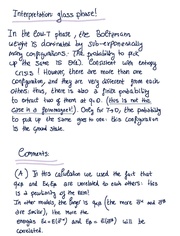 Interpretation: glass phase!
In the low-T phase, the Boltzmann
weight is dominated by sub-exponentially
many configurations. The probability to
pick up the same is O(1). Consistent with entropy
crisis! However, there are more than one
configuration, and they are very different from each
other: thus, there is also a finite probability
to extract two of them at q=0. (this is not the
case in a ferromagnet!). Only for T→0, the probability
to pick up the same goes to one: this configuration
is the ground state.
Comments:
(A) In this calculation we used the fact that
are correlated to each other: this
is a peculiarity of the REM!
In other models, the larger is q (the more
are similar), the more the
energies will be
correlated.